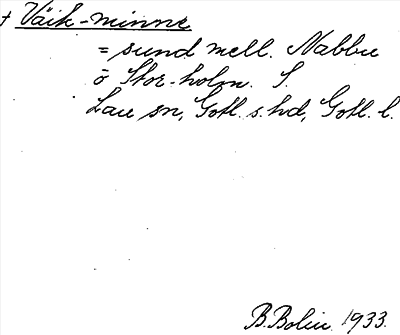 † Väik-minne
= sund mell. Nabbu
o Stor-holm. S.
Lau sn, Gotl. s. hd, Gotl. l.
B. Bolin. 1933.